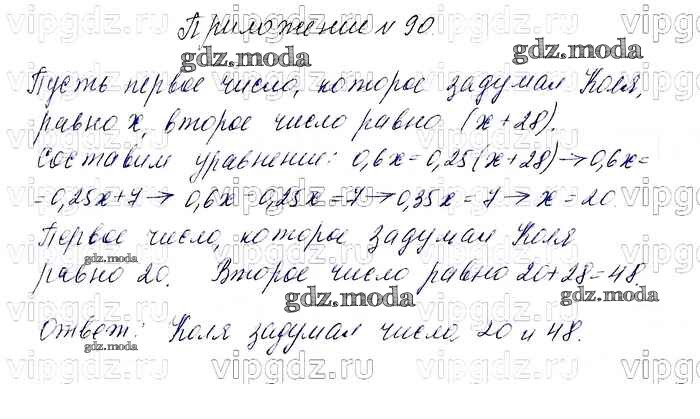 Приложение № 90
Пусть первое число, которое задумал Коля,
равно x, второе число равно (x+28).
Составим уравнение: 0,6x=0,25(x+28)→0,6x=
=0,25x+7→ 0,6x-0,25x=7→0,35x=7→x=20
Первое число, которое задумал Коля
равно 20. Второе число равно 20+28=48.
Ответ: Коля задумал числа 20 и 48.